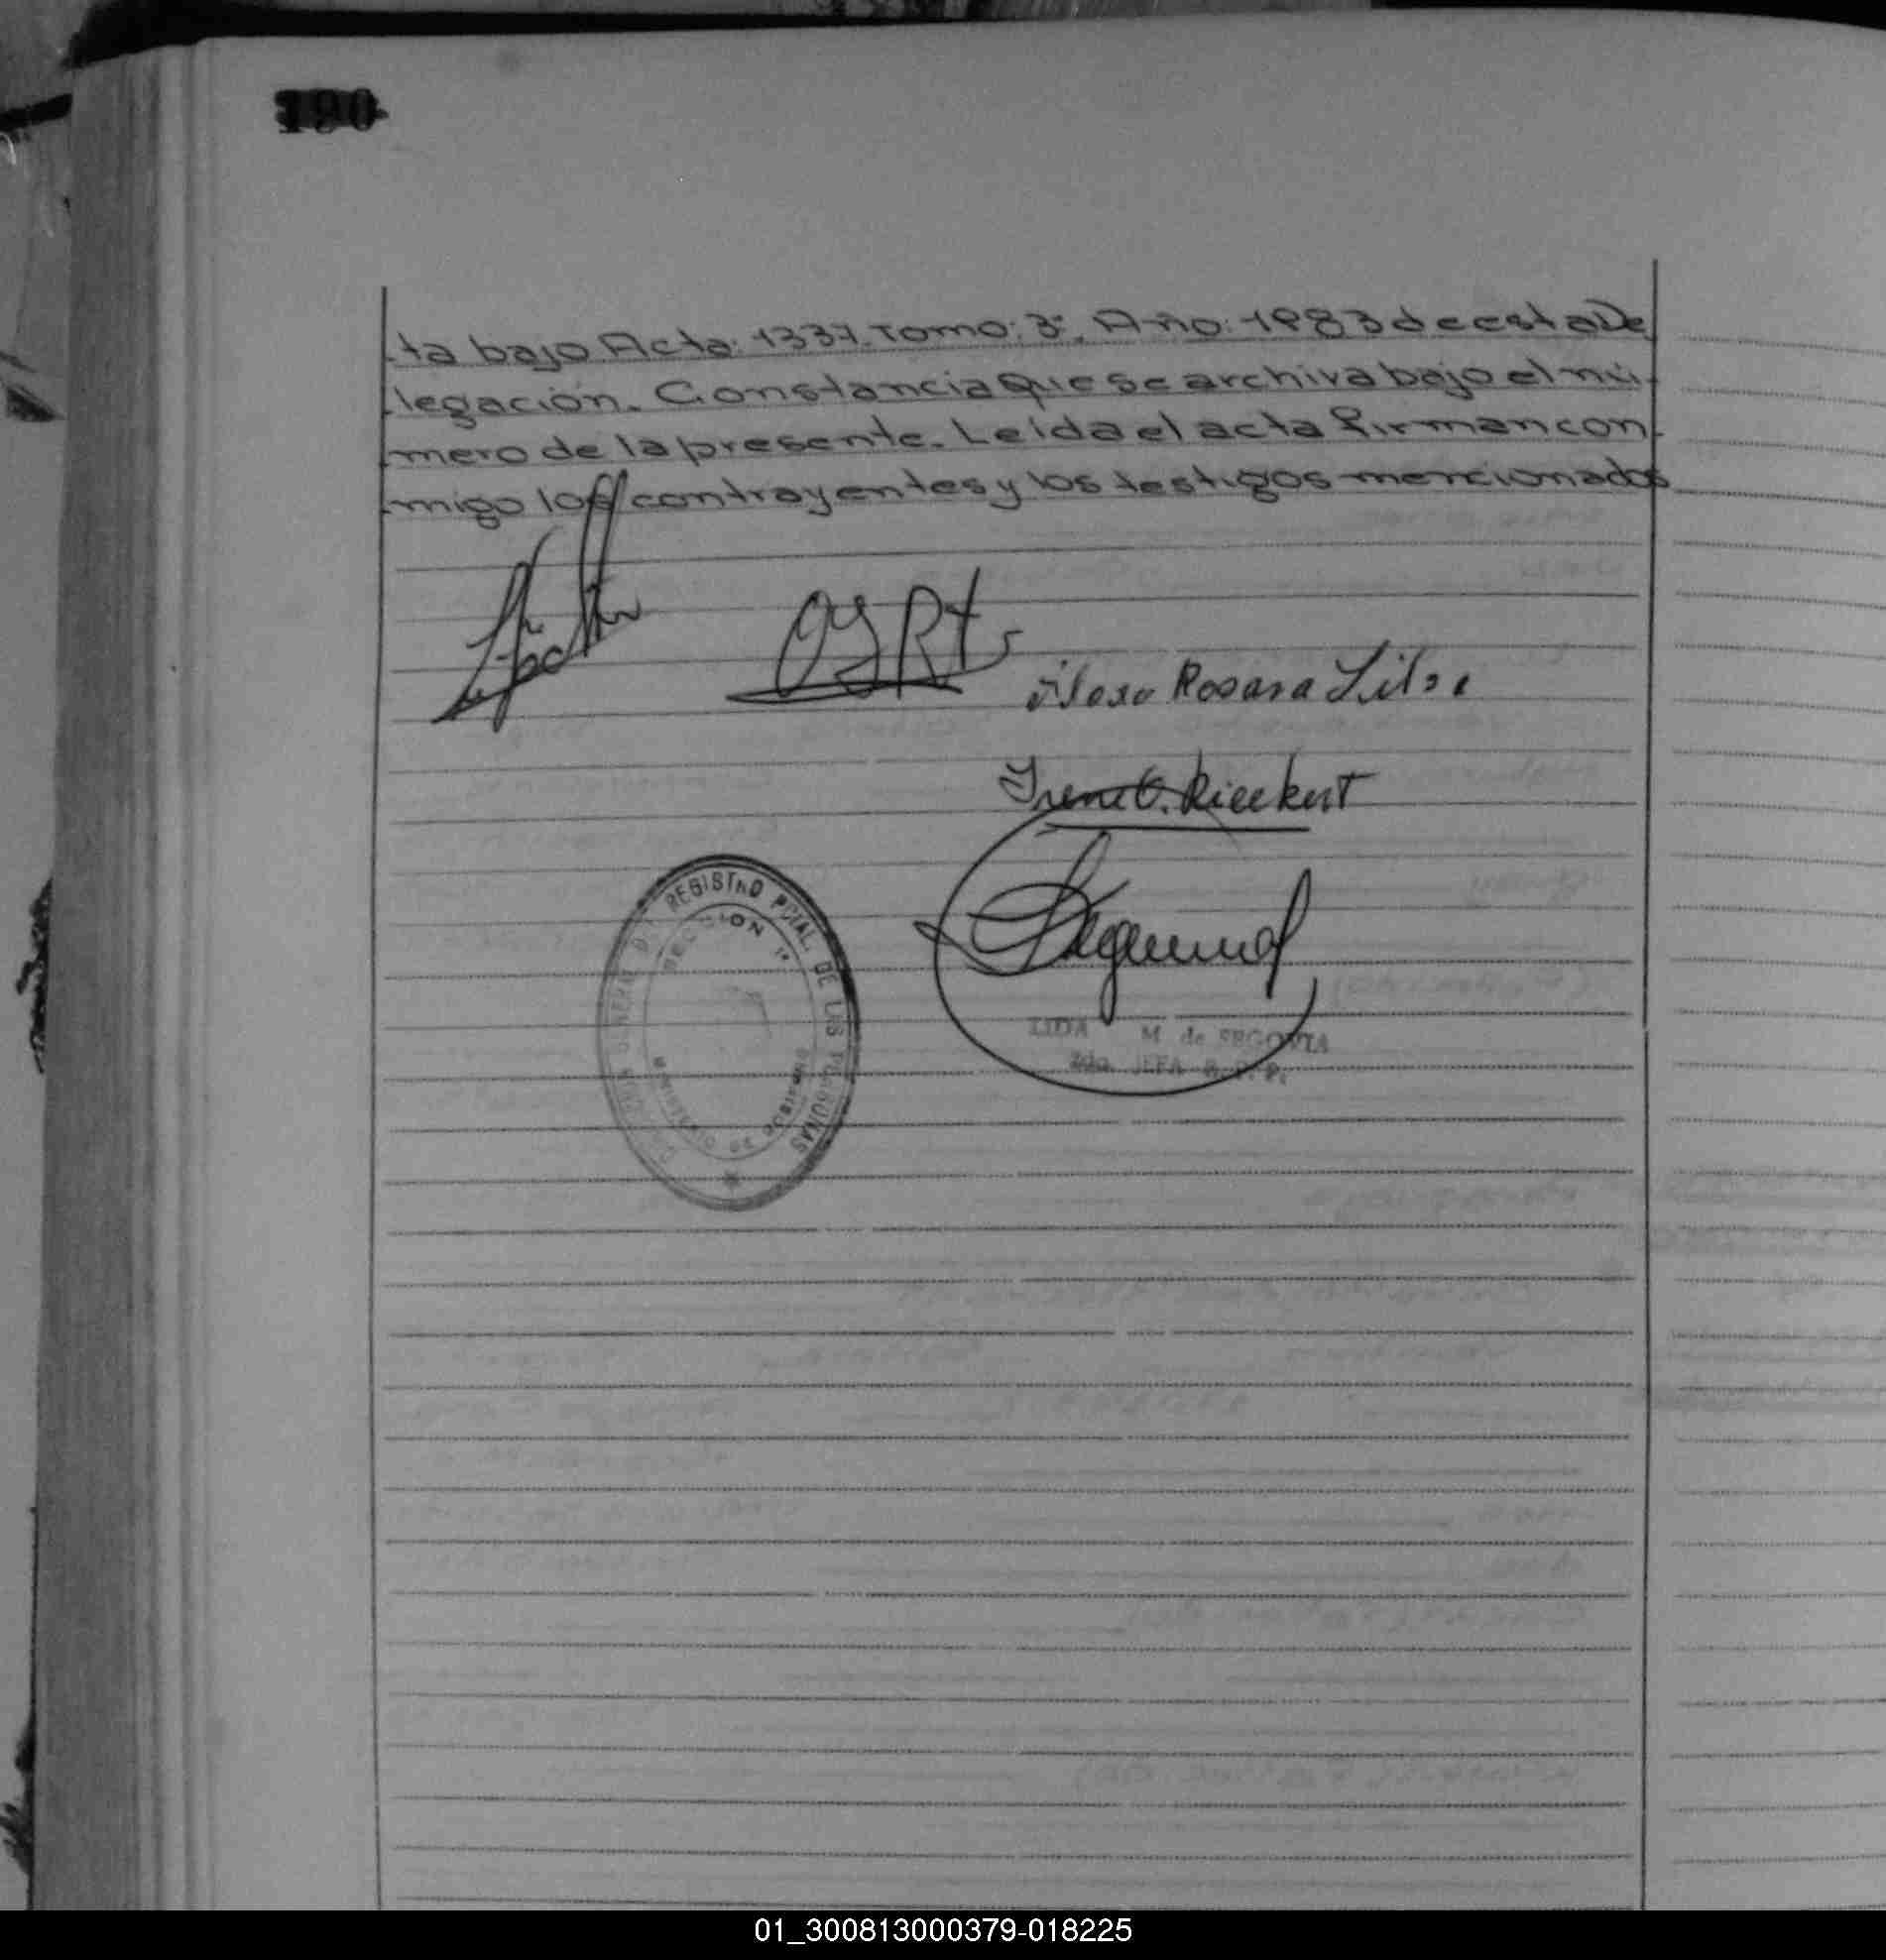 190
ta bajo Acta: 1337. Tomo: 3º, Año: 1983 de esta De
legación. Constancia que se archiva bajo el nú-
mero de la presente. Leída el acta firman con
migo los contrayentes y los testigos mencionados
Rosana
Irene G. Rieckert
REGISTRO PCIAL. DE LAS PERSONAS
SECCION
MINISTERIO DE GOBIERNO
LIDA M de SEGOVIA
2da. JEFA R. P. P.
01_300813000379-018225